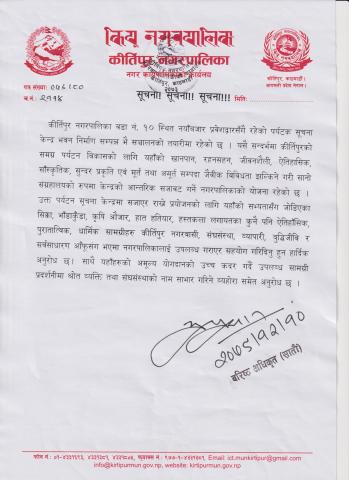 कीर्तिपुर नगरपालिका
नगर कार्यपालिकाको कार्यालय
कीर्तिपुर, काठमाडौं
पत्र संख्याः ०७५।८०
च.नं. २९१४
सूचना! सूचना!! सूचना!!!
मितिः
कीर्तिपुर नगरपालिका वडा नं. १० स्थित नयाँबजार प्रवेशद्वारसँगै रहेको पर्यटक सूचना
केन्द्र भवन निर्माण सम्पन्न भै सञ्चालनको तयारीमा रहेको छ । यसै सन्दर्भमा कीर्तिपुरको
समग्र पर्यटन विकासको लागि यहाँको खानपान, रहनसहन, जीवनशैली, ऐतिहासिक,
साँस्कृतिक, सुन्दर प्रकृति एवं मूर्त तथा अमूर्त सम्पदा जैवीक बिविधता झल्किने गरी सानो
संग्रहालयको रुपमा केन्द्रको आन्तरिक सजावट गर्ने नगरपालिकाको योजना रहेको छ ।
उक्त पर्यटन सूचना केन्द्रमा सजाएर राख्ने प्रयोजनको लागि यहाँको सभ्यतासँग जोडिएका
सिक्का, भाँडाकुँडा, कृषि औजार, हात हतियार, हस्तकला लगायतका कुनै पनि ऐतिहाँसिक,
पुरातात्विक, धार्मिक सामग्रीहरु कीर्तिपुर नगरवासी, संघसंस्था, व्यापारी, वुद्धिजीवि र
सर्वसाधारण आफुसँग भएमा नगरपालिकालाई उपलब्ध गराएर सहयोग गरिदिनु हुन हार्दिक
अनुरोध छ । साथै यहाँहरुको अमूल्य योगदानको उच्च कदर गर्दै उपलब्ध सामग्री
प्रदर्शनीमा श्रोत व्यक्ति तथा संघसंस्थाको नाम साभार गरिने व्यहोरा समेत अनुरोध छ ।
२०७५।१२।१०
वरिष्ठ अधिकृत (सातौं)
फोन नं : ०१-४३३१५१३, Email: ict.munkirtipur@gmail.com
info@kirtipurmun.gov.np, website: kirtipurmun.gov.np